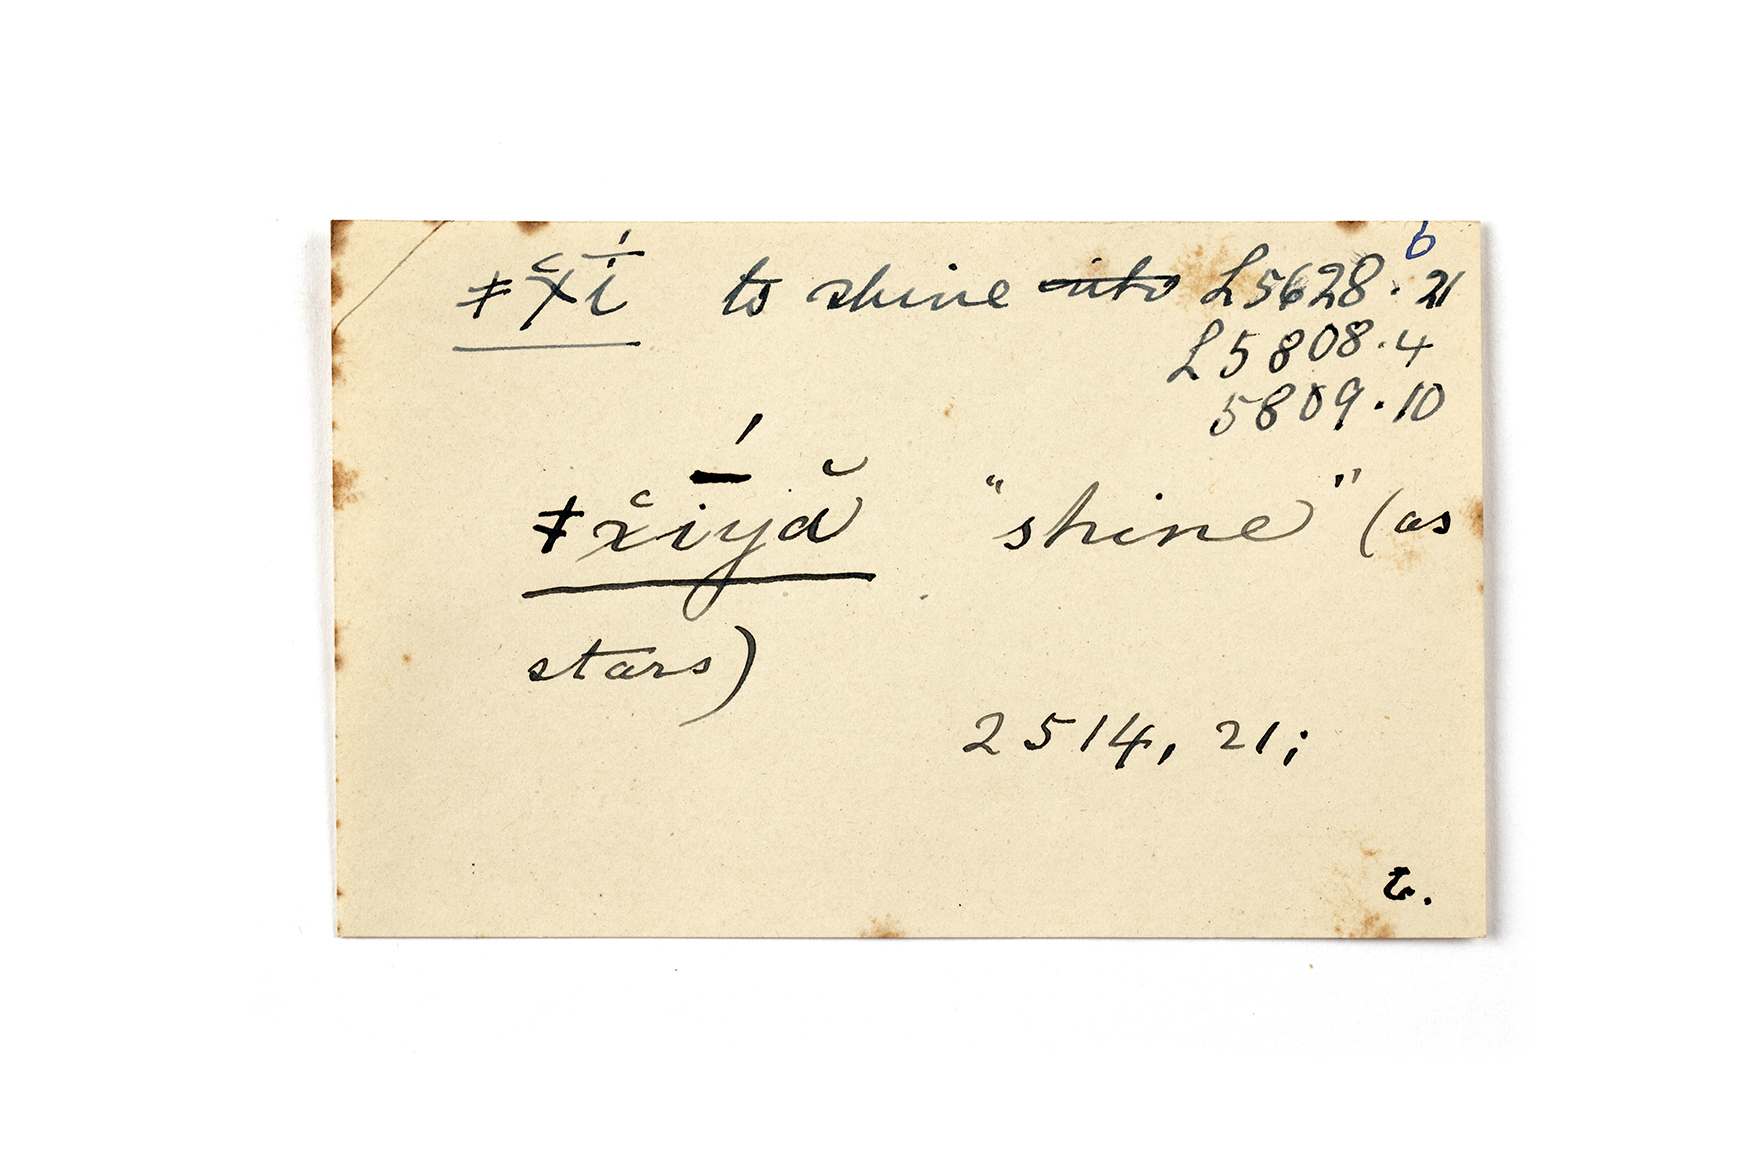 6
ǂχ̆ī́ to shine ~~into~~ L5628.21
L5808.4
5809.10
ǂx̆ī́yă "shine" (as
stars)
2514, 21;
t.